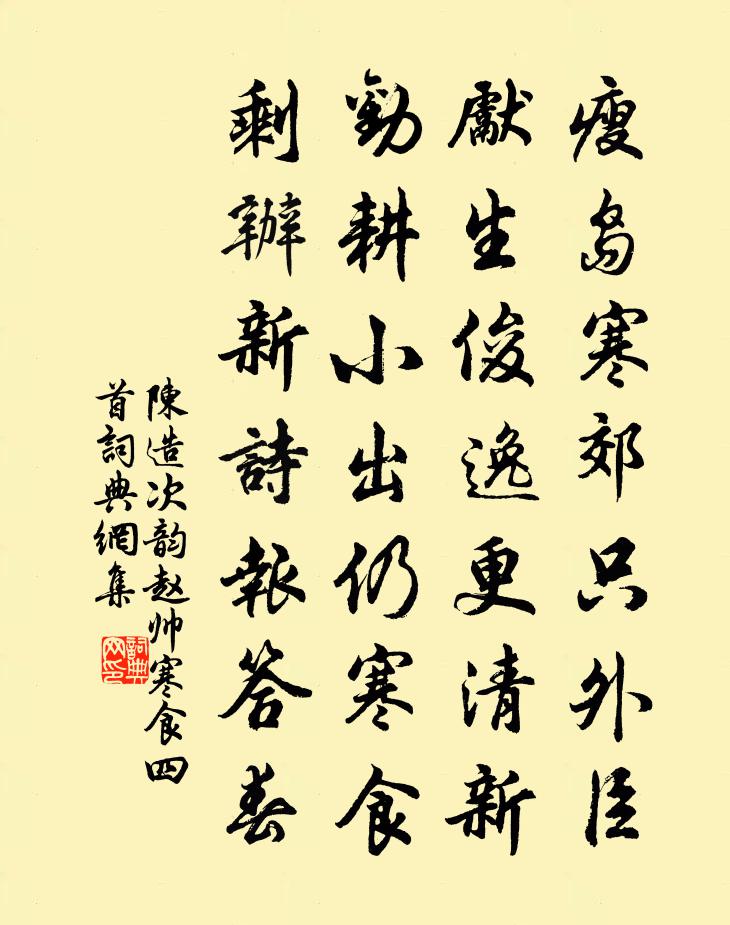 瘦島寒郊只外臣
獻生俊逸更清新
勸耕小出仍寒食
剩辦新詩報答春
陳造次韵赵帅寒食四
首詞典網集
詞典網印